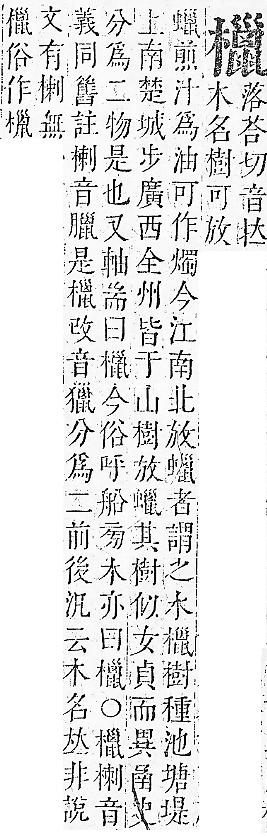 㯿
落荅切音拉
木名樹可放
蠟煎汁為油可作燭今江南北放蠟者謂之木㯿樹種池塘堤
上南楚城步廣西全州皆于山樹放蠟其樹似女貞而異史
分為二物是也又軸耑曰㯿今俗呼船旁木亦曰㯿○㯿楋音
義同舊註楋音臘是㯿改音獵分為二前後汎云木名𠀤非說
文有楋無
㯿俗作